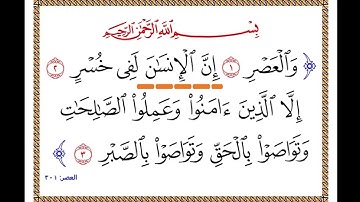 بِسْمِ اللَّهِ الرَّحْمَٰنِ الرَّحِيمِ
﴿ وَالْعَصْرِ ١ إِنَّ الْإِنسَٰنَ لَفِى خُسْرٍ ٢
إِلَّا الَّذِينَ ءَامَنُوا۟ وَعَمِلُوا۟ الصَّٰلِحَٰتِ
وَتَوَاصَوْا۟ بِالْحَقِّ وَتَوَاصَوْا۟ بِالصَّبْرِ ٣ ﴾
العصر: ٣-١